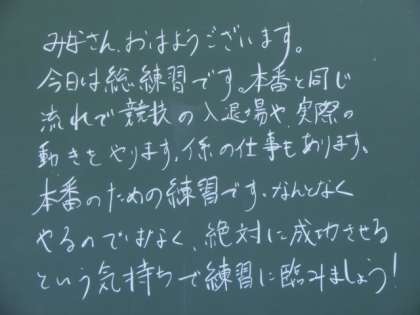 みなさん、おはようございます。
今日は総練習です。本番と同じ
流れで競技の入退場や、実際の
動きをやります。係の仕事もあります。
本番のための練習です。なんとなく
やるのではなく、絶対に成功させる
という気持ちで練習に臨みましょう!